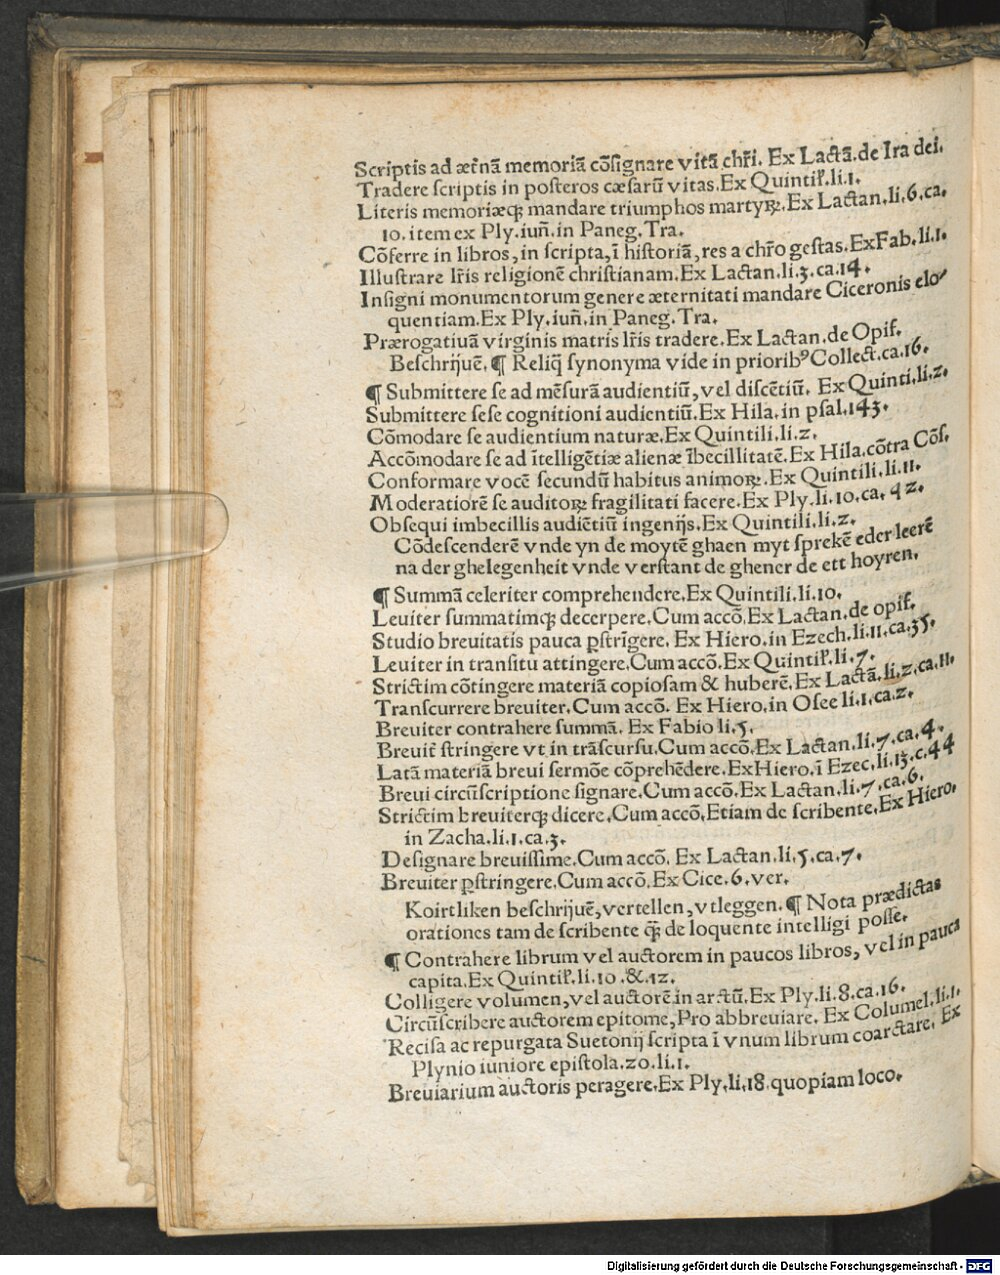 Scriptis ad æt̃nã memoriã cõſignare vitã chr̃i. Ex Lactã.de Ira dei.
Tradere ſcriptis in poſteros cæſarũ vitas.Ex Quintil̃.li.1.
Literis memoriæqꝫ mandare triumphos martyꝝ.Ex Lactan.li.6.ca.
10.item ex Ply.iuñ.in Paneg.Tra.
Cõferre in libros,in ſcripta,ĩ hiſtoriã,res a chr̃o geſtas.ExFab.li.1.
Illuſtrare lr̃is religionẽ chriſtianam.Ex Lactan.li.3.ca.14.
Inſigni monumentorum genere æternitati mandare Ciceronis elo⸗
quentiam.Ex Ply.iuñ.in Paneg.Tra.
Prærogatiuã virginis matris lr̃is tradere.Ex Lactan.de Opif.
Beſchrijuẽ.¶ Reliq̃ ſynonyma vide in priorib⁹Collect.ca.16.
¶ Submittere ſe ad mẽſurã audientiũ,vel diſcẽtiũ. Ex Quinti.li.2.
Submittere ſeſe cognitioni audientiũ.Ex Hila.in pſal.143.
Cõmodare ſe audientium naturæ.Ex Quintili.li.2.
Accõmodare ſe ad ĩtelligẽtiæ alienæ ĩbecillitatẽ.Ex Hila.cõtra Cõſ.
Conformare vocẽ ſecundũ habitus animoꝝ.Ex Quintili.li.11.
Moderatiorẽ ſe auditoꝝ fragilitati facere.Ex Ply.li.10.ca.42.
Obſequi imbecillis audiẽtiũ ingenijs.Ex Quintili.li.2.
Cõdeſcenderẽ vnde yn de moytẽ ghaen myt ſprekẽ eder leerẽ
na der ghelegenheit vnde verſtant de ghener de ett hoyren.
¶ Summã celeriter comprehendere.Ex Quintili.li.10.
Leuiter ſummatimqꝫ decerpere.Cum accõ.Ex Lactan.de opif.
Studio breuitatis pauca ꝑſtrĩgere. Ex Hiero.in Ezech.li.11.ca.35.
Leuiter in tranſitu attingere.Cum accõ.Ex Quintil̃.li.7.
Strictim cõtingere materiã copioſam & huberẽ.Ex Lactã.li.2.ca.11.
Tranſcurrere breuiter.Cum accõ. Ex Hiero.in Oſee li.1.ca.2.
Breuiter contrahere ſummã. Ex Fabio li.5.
Breuit̃ ſtringere vt in trãſcurſu.Cum accõ.Ex Lactan.li.7.ca.4.
Latã materiã breui ſermõe cõprehẽdere.ExHiero.ĩ Ezec.li.13.c.44
Breui circũſcriptione ſignare.Cum accõ.Ex Lactan.li.7.ca.6.
Strictim breuiterqꝫ dicere.Cum accõ.Etiam de ſcribente.Ex Hiero.
in Zacha.li.1.ca.3.
Deſignare breuiſſime.Cum accõ. Ex Lactan.li.5.ca.7.
Breuiter ꝑſtringere.Cum accõ.Ex Cice.6.ver.
Koirtliken beſchrijuẽ,vertellen,vtleggen.¶ Nota prædictas
orationes tam de ſcribente q̃ꝫ de loquente intelligi poſſe.
¶ Contrahere librum vel auctorem in paucos libros, vel in pauca
capita.Ex Quintil̃.li.10.&.12.
Colligere volumen,vel auctorẽ in arctũ.Ex Ply.li.8.ca.16.
Circũſcribere auctorem epitome,Pro abbreuiare. Ex Columel.li.1.
Reciſa ac repurgata Suetonij ſcripta ĩ vnum librum coarctare. Ex
Plynio iuniore epiſtola.20.li.1.
Breuiarium auctoris peragere.Ex Ply.li.18.quopiam loco.
Digitalisierung gefördert durch die Deutsche Forschungsgemeinschaft - DFG